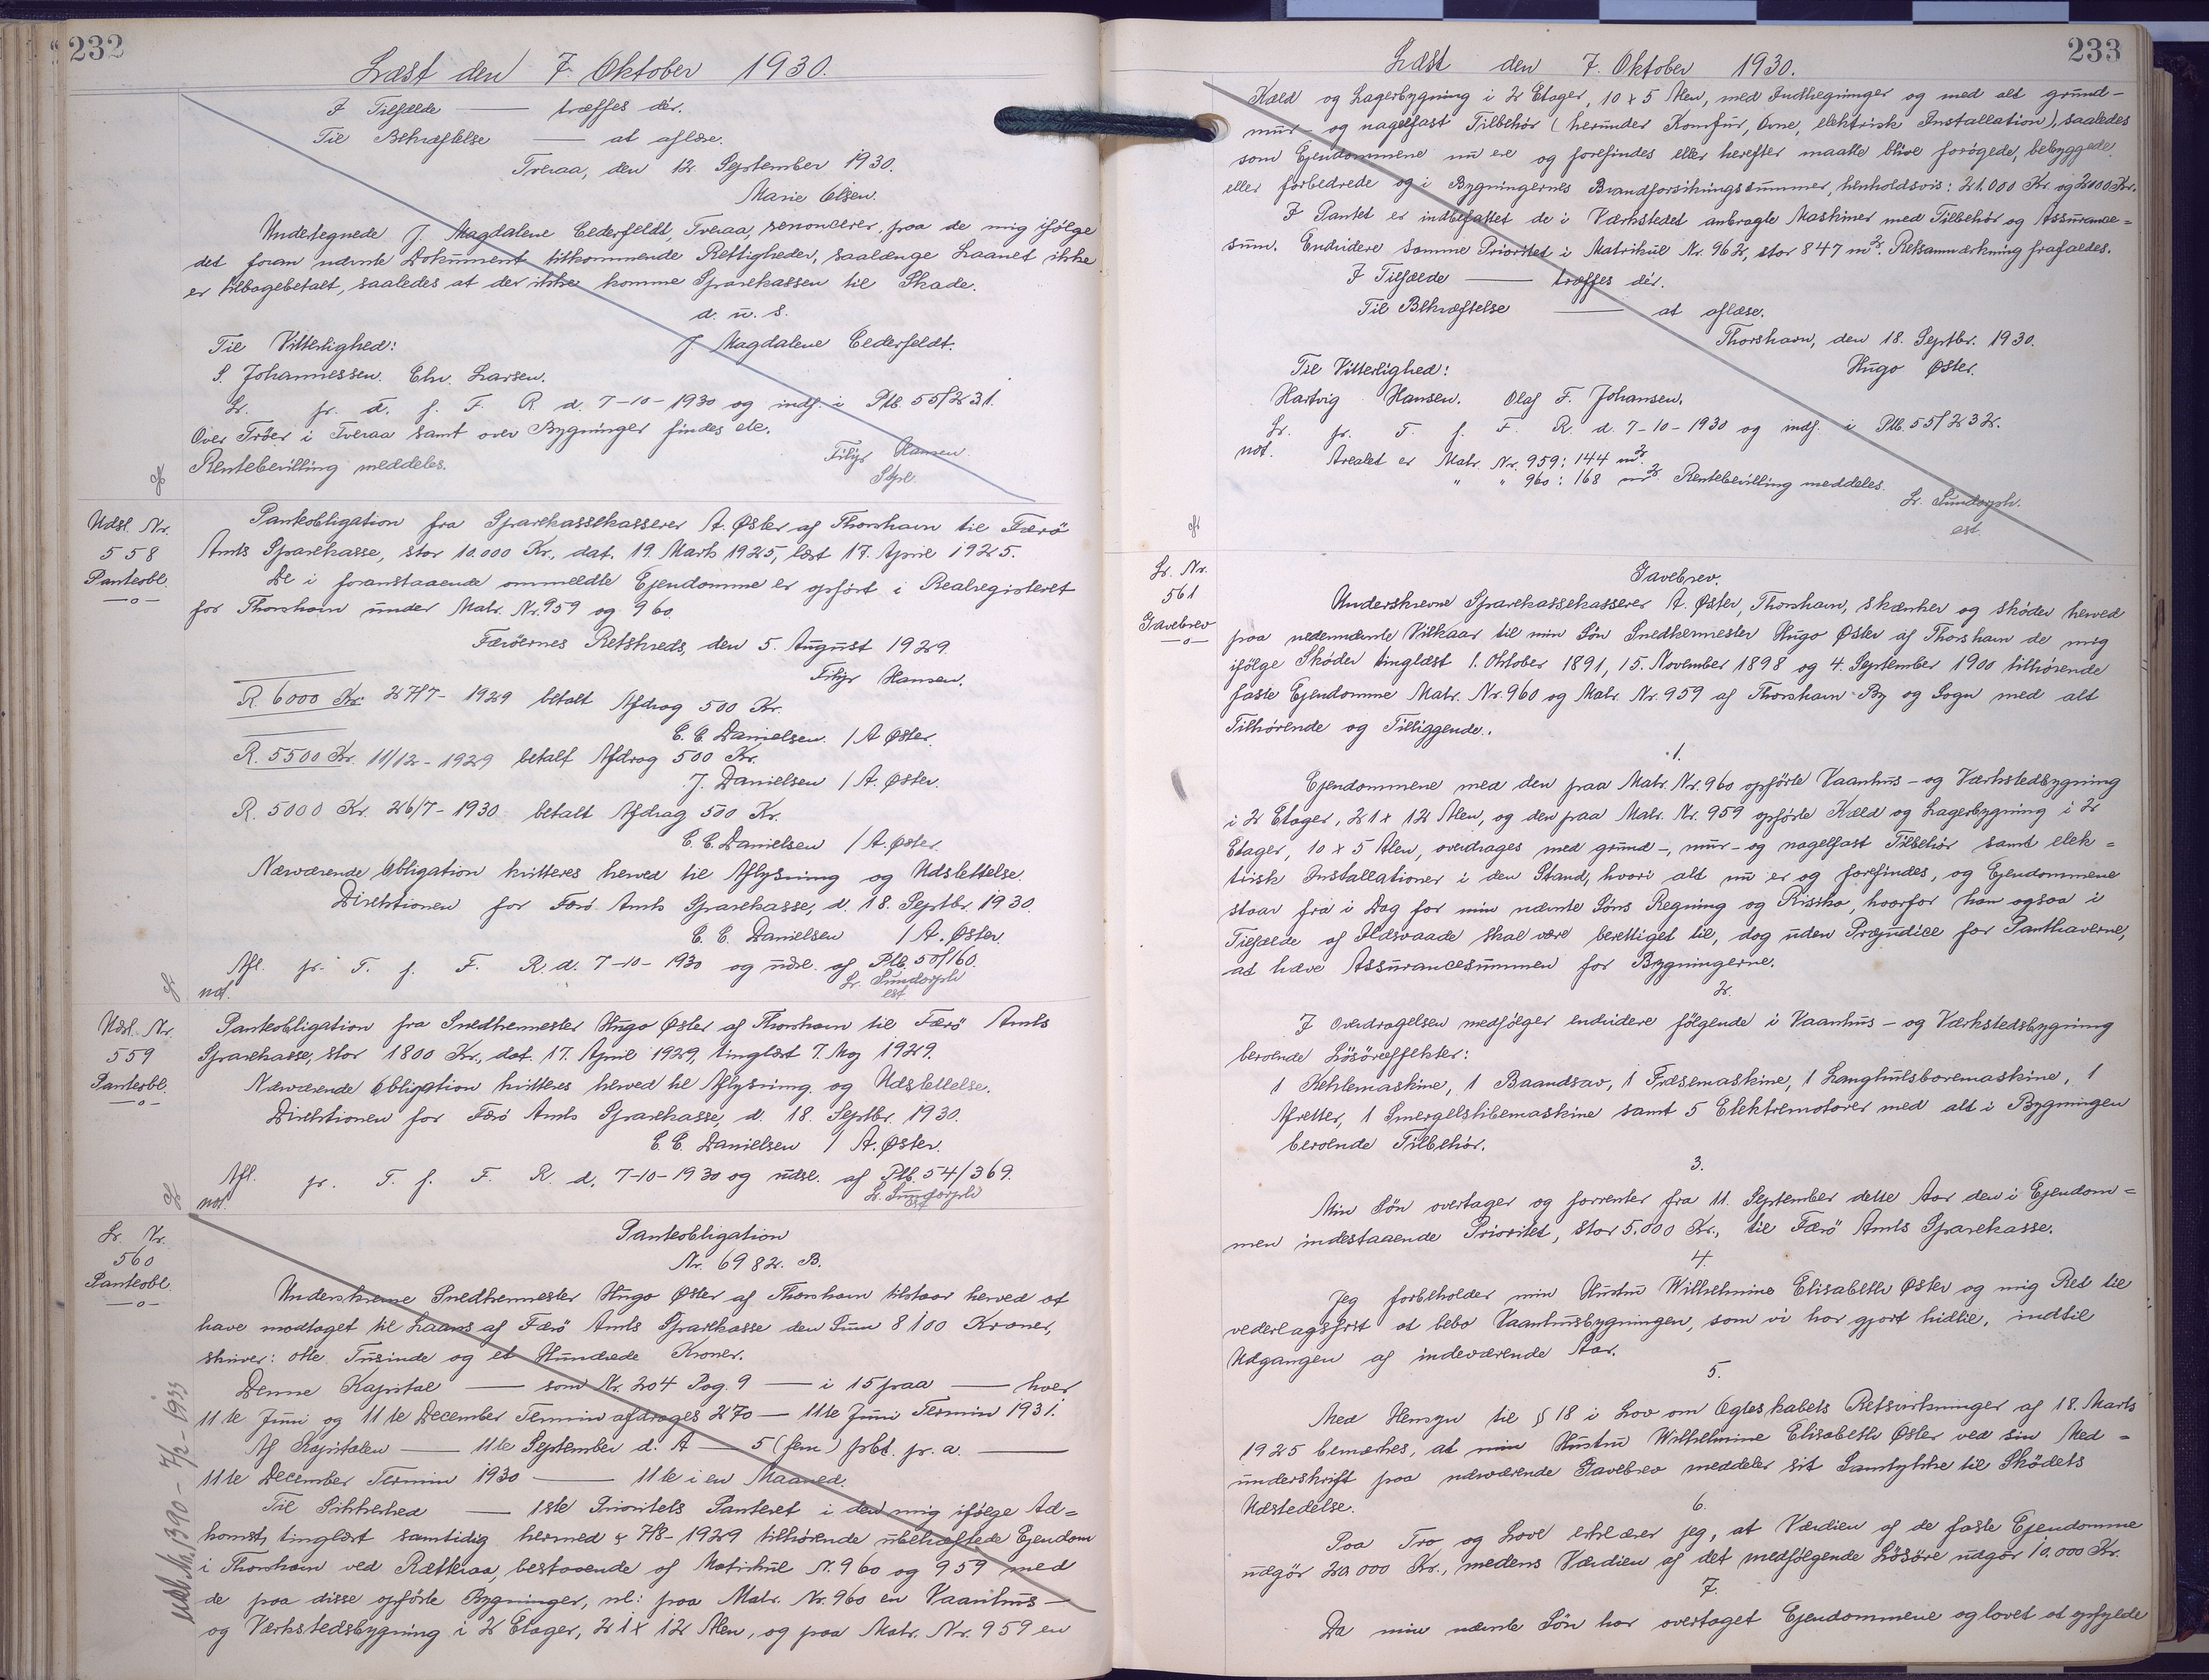 232
Læst den 7. Oktober 1930.
I Tilfælde — træffes dér.
Til Bekræftelse — at aflæse.
Tveraa, den 12 September 1930.
Marie Olsen.
Undetegnede J. Magdalene Cederfeldt, Tveraa, renoncerer paa de mig ifølge
det foran nævnte Dokument tilkommende Rettigheder, saalænge Laanet ikke
er tilbagebetalt, saaledes at der ikke komme Sparekassen til Skade.
d. u. s.
Til Vitterlighed: J Magdalene Cederfeldt.
S. Johannessen. Chr. Larsen.
Lr. pr. d. f. F. R d. 7-10-1930 og indf. i Ptb. 55/231.
Over Tröer i Tveraa samt over Bygninger findes ele.
Rentebevilling meddeles.
Filip Hansen
Udsl. Nr.
558
Panteobl.
—o—
Panteobligation fra Sparekassekasserer A. Øster af Thorshavn til Færö
Amts Sparekasse, stor 10.000 Kr., dat. 19. Marts 1925, læst 17. April 1925.
De i foranstaaende ommeldte Ejendomme er opført i Realregisteret
for Thorshavn under Matr. Nr. 959 og 960.
Færöernes Retskreds, den 5. August 1929.
Filip Hansen.
R. 6000 Kr. 27/7-1929 betalt Afdrag 500 Kr.
C. C. Danielsen. / A Øster.
R. 5500 Kr. 11/12-1929 betalt Afdrag 500 Kr.
J. Danielsen / A. Øster.
R. 5000 Kr. 26/7-1930 betalt Afdrag 500 Kr.
C. C. Danielsen / A. Øster.
Nærværende Obligation kvitteres herved til Aflysning og Udslettelse.
Direktionen for Færö Amts Sparekasse, d. 18. Septbr. 1930.
C. C. Danielsen / A. Øster.
Afl. pr. T. f. F. R. d. 7-10-1930 og udsl. af Ptb. 50/160.
not. Lr. Sundorph
est.
Udsl. Nr.
559
Panteobl.
—o—
Panteobligation fra Snedkermester Hugo Øster af Thorshavn til Færö Amts
Sparekasse, stor 1800 Kr., dat. 17. April 1929, tinglæst 7. Maj 1929.
Nærværende Obligation kvitteres herved til Aflysning og Udslettelse.
Direktionen for Færö Amts Sparekasse, d. 18. Septbr. 1930.
C. C. Danielsen / A. Øster.
Afl. pr. T. f. F. R. d. 7-10-1930 og udsl. af Ptb. 54/369.
not. Lr. Sundorph
est
Lr. Nr.
560
Panteobl.
—o—
Panteobligation
Nr. 6982. B.
Underskrevne Snedkermester Hugo Øster af Thorshavn tilstaar herved at
have modtaget til Laans af Færö Amts Sparekasse den Sum 8100 Kroner,
skriver: otte Tusinde og et Hundrede Kroner.
Denne Kapital — som Nr. 204 Pag. 9 — i 15 paa — hver
11te Juni og 11te December Termin afdrages 270 — 11te Juni Termin 1931.
Af Kapitalen — 11te September d. A — 5 (fem) prCt. pr. a. —
11te December Termin 1930 — 11te i en Maaned.
Til Sikkerhed — 1ste Prioritets Panteret i den mig ifølge Ad=
komst, tinglæst samtidig hermed & 7/8-1929 tilhørende ubehæftede Ejendom
i Thorshavn ved Rættaraa, bestaaende af Matrikul N. 960 og 959 med
de paa disse opførte Bygninger, nl: paa Matr. Nr. 960 en Vaanhus-
og Værkstedsbygning i 2 Etager, 21 x 12 Alen, og paa Matr. Nr. 959 en
Udsl. Nr. 1390 - 7/2 - 1933
233
Læst den 7. Oktober 1930.
Kæld og Lagerbygning i 2 Etager, 10 x 5 Alen, med Indhegninger og med alt grund-
mur- og nagelfast Tilbehör (herunder Komfur, Ovne, elektrisk Installation), saaledes
som Ejendommene nu ere og forefindes eller herefter maatte blive forögede, bebyggede
eller forbedrede og i Bygningernes Brandforsikringssummer, henholdsvis: 21.000 Kr. og 2000 Kr.
I Pantet er indbefattet de i Værkstedet anbragte Maskiner med Tilbehör og Assurance=
sum. Endvidere samme Prioritet i Matrikul Nr. 962, stor 847 m². Retsanmærkning frafaldes.
I Tilfælde — træffes dér.
Til Bekræftelse — at aflæse.
Thorshavn, den 18. Septbr. 1930.
Til Vitterlighed: Hugo Øster.
Hartvig Hansen. Olaf F. Johansen.
Lr. pr. T. f. F. R. d. 7-10-1930 og indf. i Ptb. 55/232.
not. Arealet er Matr. Nr. 959: 144 m²
" " 960: 168 m². Rentebevilling meddeles.
Lr. Sundorph.
est.
Lr. Nr.
561
Gavebrev
—o—
Gavebrev.
Underskrevne Sparekassekasserer A. Øster, Thorshavn, skænker og sköder herved
paa nedennævnte Vilkaar til min Sön Snedkermester Hugo Øster af Thorshavn de mig
ifölge Sköder tinglæst 1. Oktober 1891, 15. November 1898 og 4. September 1900 tilhörende
faste Ejendomme Matr. Nr. 960 og Matr. Nr. 959 af Thorshavn By og Sogn med alt
Tilhörende og Tilliggende.
1.
Ejendommene med den paa Matr. Nr. 960 opförte Vaanhus- og Værkstedbygning
i 2 Etager, 21 x 12 Alen, og den paa Matr. Nr. 959 opförte Kæld og Lagerbygning i 2
Etager, 10 x 5 Alen, overdrages med grund-, mur- og nagelfast Tilbehör samt elek=
trisk Installationer i den Stand, hvori alt nu er og forefindes, og Ejendommene
staar fra i Dag for min nævnte Söns Regning og Rissiko, hvorfor han ogsaa i
Tilfælde af Ildsvaade skal være berettiget til, dog uden Præjudice for Panthaverne,
at hæve Assurancesummen for Bygningerne.
2.
I Overdragelsen medfölger endvidere fölgende i Vaanhus- og Værkstedsbygning
beroende Lösöreeffekter:
1 Kehlemaskine, 1 Baandsav, 1 Fræsemaskine, 1 Langhulsboremaskine, 1
Afretter, 1 Smergelslibemaskine samt 5 Elektromotorer med alt i Bygningen
beroende Tilbehör.
3.
Min Sön overtager og forrenter fra 11. September dette Aar den i Ejendom=
men indestaaende Prioritet, stor 5.000 Kr., til Færö Amts Sparekasse.
4.
Jeg forbeholder min Hustru Wilhelmine Elisabeth Øster og mig Ret til
vederlagsfrit at bebo Vaanhusbygningen, som vi har gjort hidtil, indtil
Udgangen af indeværende Aar.
5.
Med Hensyn til § 18 i Lov om Ægteskabets Retsvirkninger af 18. Marts
1925 bemærkes, at min Hustru Wilhelmine Elisabeth Øster ved sin Med=
underskrift paa nærværende Gavebrev meddeler sit Samtykke til Sködets
Udstedelse.
6.
Paa Tro og Love erklærer jeg, at Værdien af de faste Ejendomme
udgör 20.000 Kr., medens Værdien af det medfölgende Lösöre udgör 10.000 Kr.
7.
Da min nævnte Sön har overtaget Ejendommene og lovet at opfylde